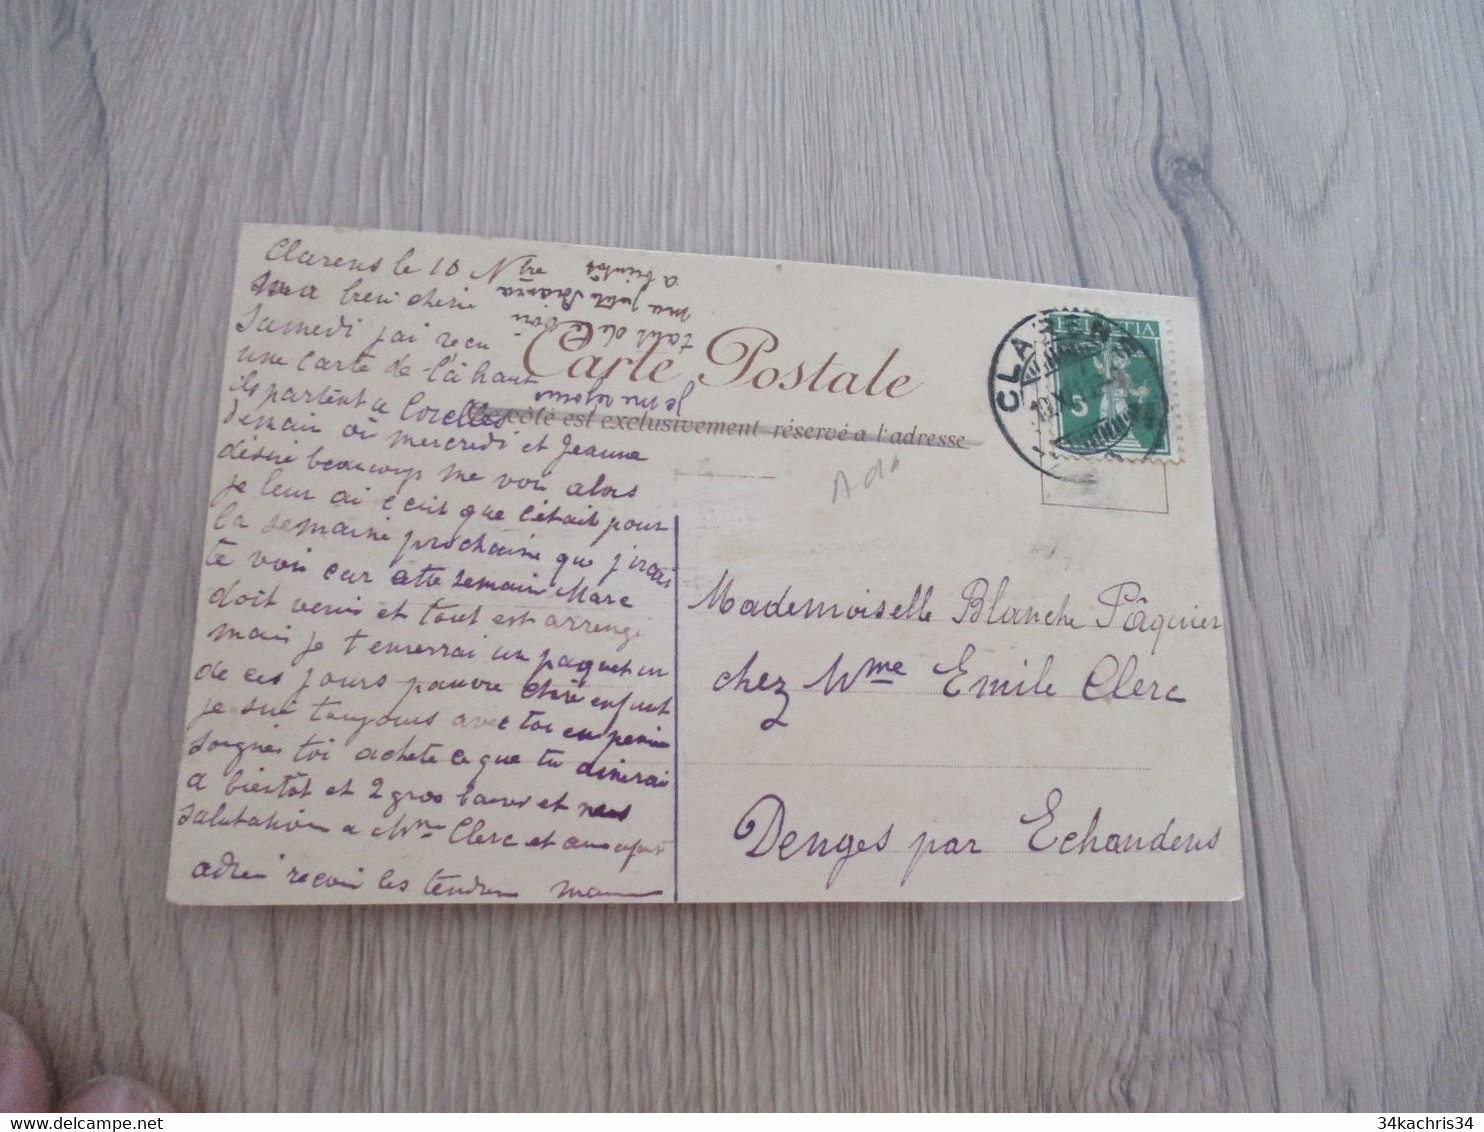 Clarens le 10 Nbre
ma bien cherie
Samedi j'ai recu
une carte de l'à haut
ils partent a Corcelles
demain où mercredi et Jeanne
désire beaucoup me voir alors
je leur ai ecrit que c'était pour
la semaine prochaine que j'irais
te voir car cette semain Marc
doit venir et tout est arrengé
mais je t'enverrai un paquet un
de ces jours pauvre chère enfant
je sui toujours avec toi en pensée
soignes toi achete ce que tu désirerai
a bientôt et 2 gros baiser et
salutation a Mme Clerc et
adieu recoi les tendres
je me rejouis
tant de te voir
ma petite
a bientôt
Carte Postale
Ce côté est exclusivement réservé a l'adresse
Ado
HELVETIA
5
CLARENS
Mademoiselle Blanche Pâquier
chez Mme Emile Clerc
Denges par Echandens
34kachris34